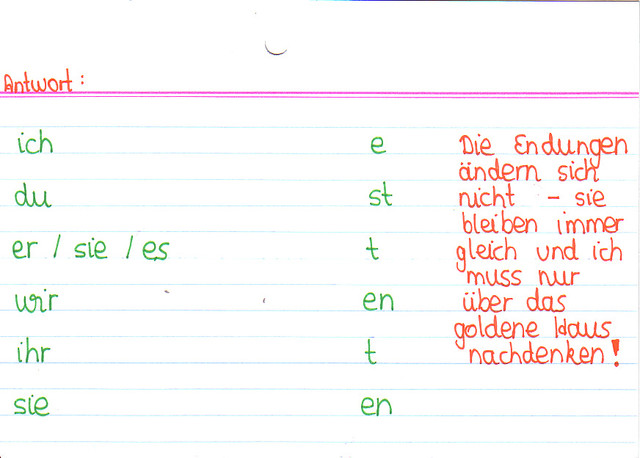 Antwort:
ich e
du st
er / sie / es t
wir en
ihr t
sie en
Die Endungen
ändern sich
nicht - sie
bleiben immer
gleich und ich
muss nur
über das
goldene Haus
nachdenken!